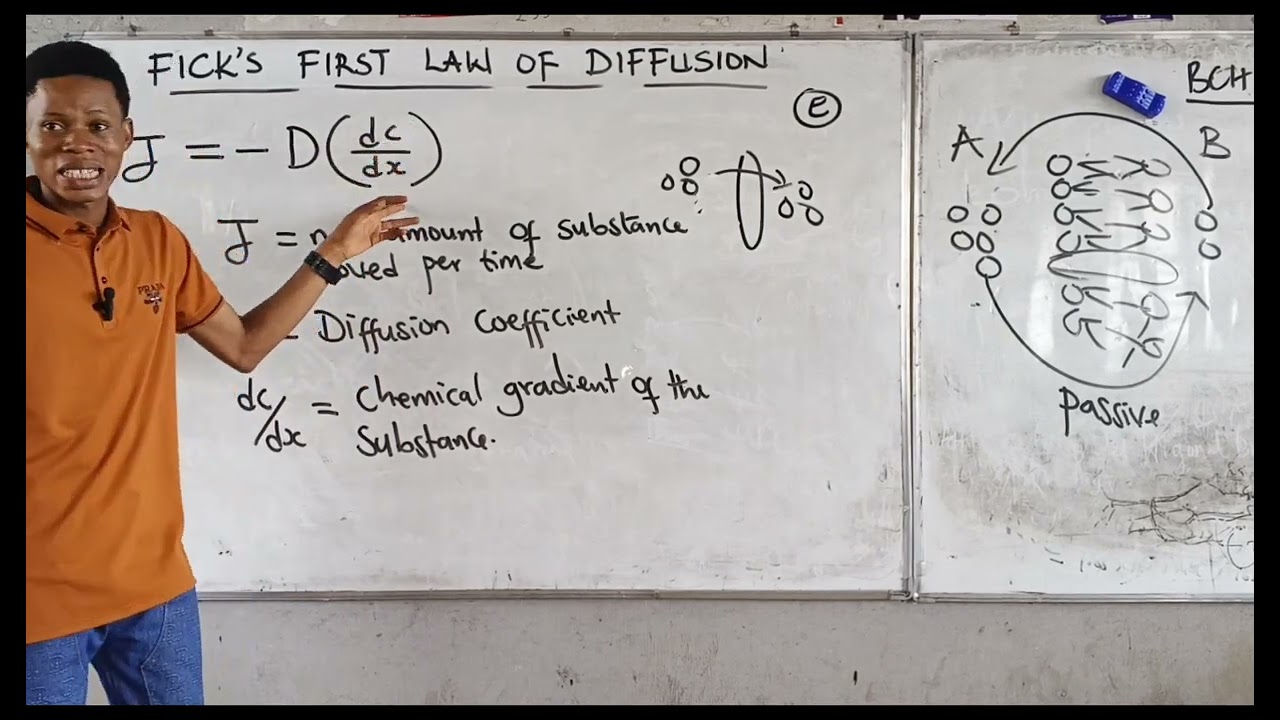 FICK'S FIRST LAW OF DIFFUSION
J = - D(dc/dx)
e
J = amount of substance
per time
= Diffusion Coefficient
dc/dx = Chemical gradient of the
Substance.
BCH
A
B
passive
PRADA